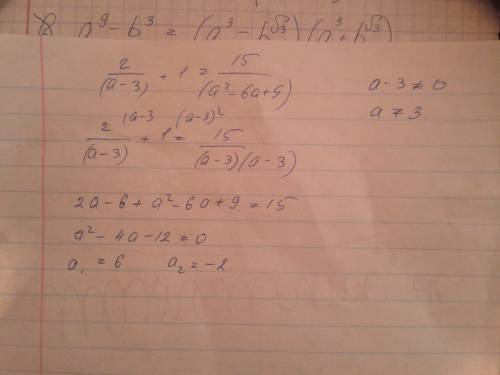 a⁹ - b³ = (a³ - b^√3) (a³ + b^√3)
2/(a-3) + 1 = 15/(a²-6a+9)
a-3 ≠ 0
a ≠ 3
(a-3 (a-3)²
2/(a-3) + 1 = 15/(a-3)(a-3)
2a-6 + a²-6a+9 = 15
a²-4a-12=0
a₁ = 6 a₂ = -2